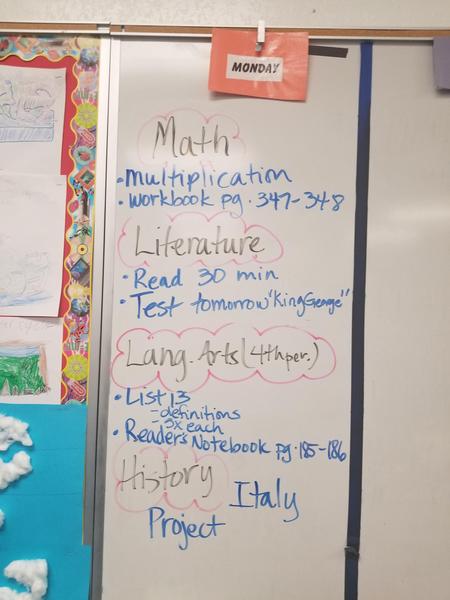 MONDAY
Math
• multiplication
• workbook pg. 347-348
Literature
• Read 30 min
• Test tomorrow "King George"
Lang. Arts (4th per.)
• List 13
- definitions
- 3x each
• Reader's Notebook pg. 185-186
History
Italy
Project